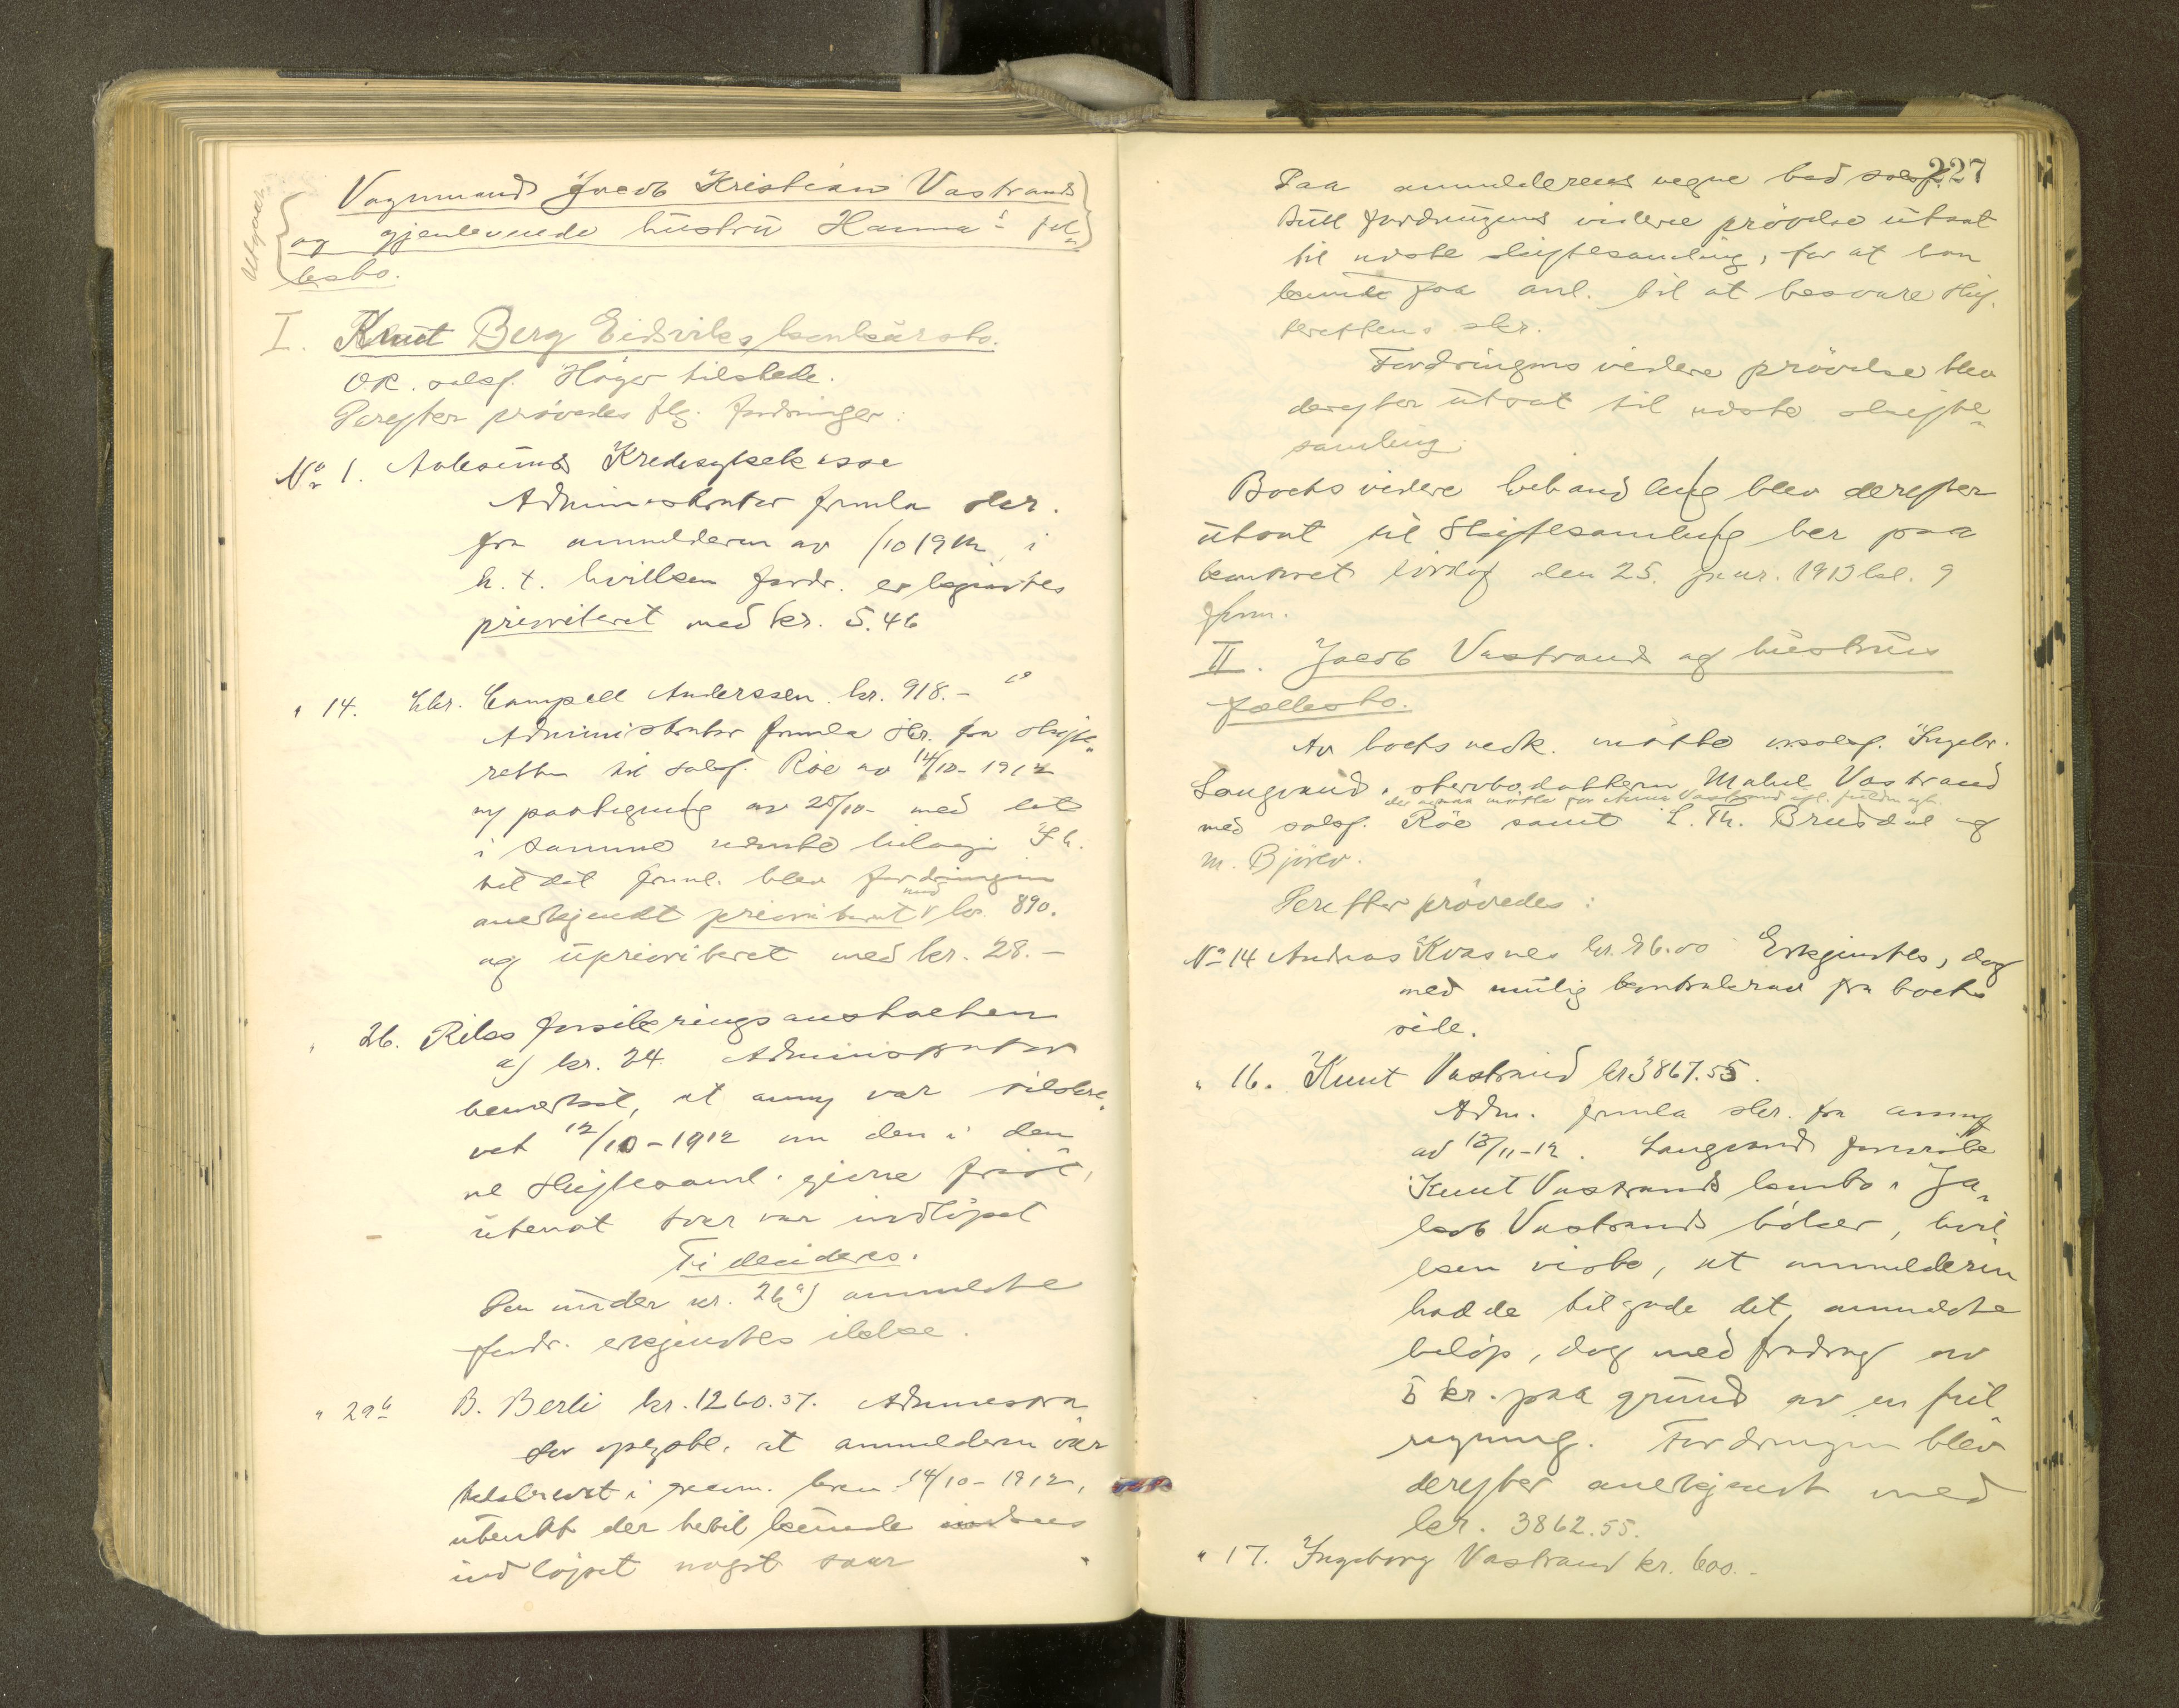 Utgaar
Vognmand Jacob Kristian Vastrands
og gjenlevende hustru Hanna's føl-
lesbo.
I. Knut Berg Eidsviks konkursbo.
O.R. salsf. Höyer tilstede.
Derefter prøvedes flg. fordringer:
No 1. Aalesunds Kredssykekasse
Administrator fremla skr.
fra anmelderen av /10 1912 i
h. t. hvilken fordr. erkjendtes
prioritert med kr. 5.46
" 14. Chr. Campell Anderssen kr. 918.-
Administrator fremla skr. fra skifte-
retten til salsf. Röe av 14/10-1912
m paategning av 25/10- med det
i samme nævnte bilag.
ved det freml. blev fordringen
anerkjendt prioritert med kr. 890.
og uprioritert med kr. 28.-
" 26. Riksforsikringsanstalten
a) kr. 24. Administrator
bemerket, at anm var tilskre-
vet 12/10-1912 om den i den-
ne skiftesaml. givne frist,
uten at svar var indløpet
Ti decideres.
Den under nr. 26 a) anmeldte
fordr. erkjendtes ikke.
" 29 b B. Berli kr. 1260.37. Administra
tor opgjorde, at anmelderen var
tilskrevet i rekom. brev 14/10-1912,
uten at der hertil kunde
indløpet noget svar
227
Paa anmelderens vegne bad salsf.
Bull fordringens videre prøvelse utsat
til næste skiftesamling, for at han
kunde faa anl. til at besvare skif-
terettens skr.
Fordringens videre prøvelse blev
derefter utsat til næste skifte-
samling.
Boets videre behandling blev derefter
utsat til skiftesamling her paa
kontoret lördag den 25. januar. 1913 kl. 9
form.
II. Jacob Vastrand og hustrus
fællesbo.
Av boets vedk. møtte o.r.salsf. Ingebr.
Langsæd, sterbodatteren Mabel Vastrand
der ogsaa møtte for Anna Vastrand efl. fuldm.
med salsf. Röe samt L. Th. Brusdal og
M. Björlo.
Derefter prøvedes:
No 14 Andreas Kvasnes kr. 26.00 Erkjendtes, dog
med mulig kontrakrav fra boets
side.
" 16. Knut Vastrand kr 3867.55.
Adm. fremla skr. fra anm
av 13/11-12. Langsæd foreviste
Knut Vastrands konto i Ja-
kob Vastrands bøker, hvil-
ken viste, at anmelderen
hadde tilgode det anmeldte
beløp, dog med fradrag av
5 kr. paa grund av en feil-
regning. Fordringen blev
derefter anerkjendt med
kr. 3862.55.
" 17. Ingeborg Vastrand kr. 600.-